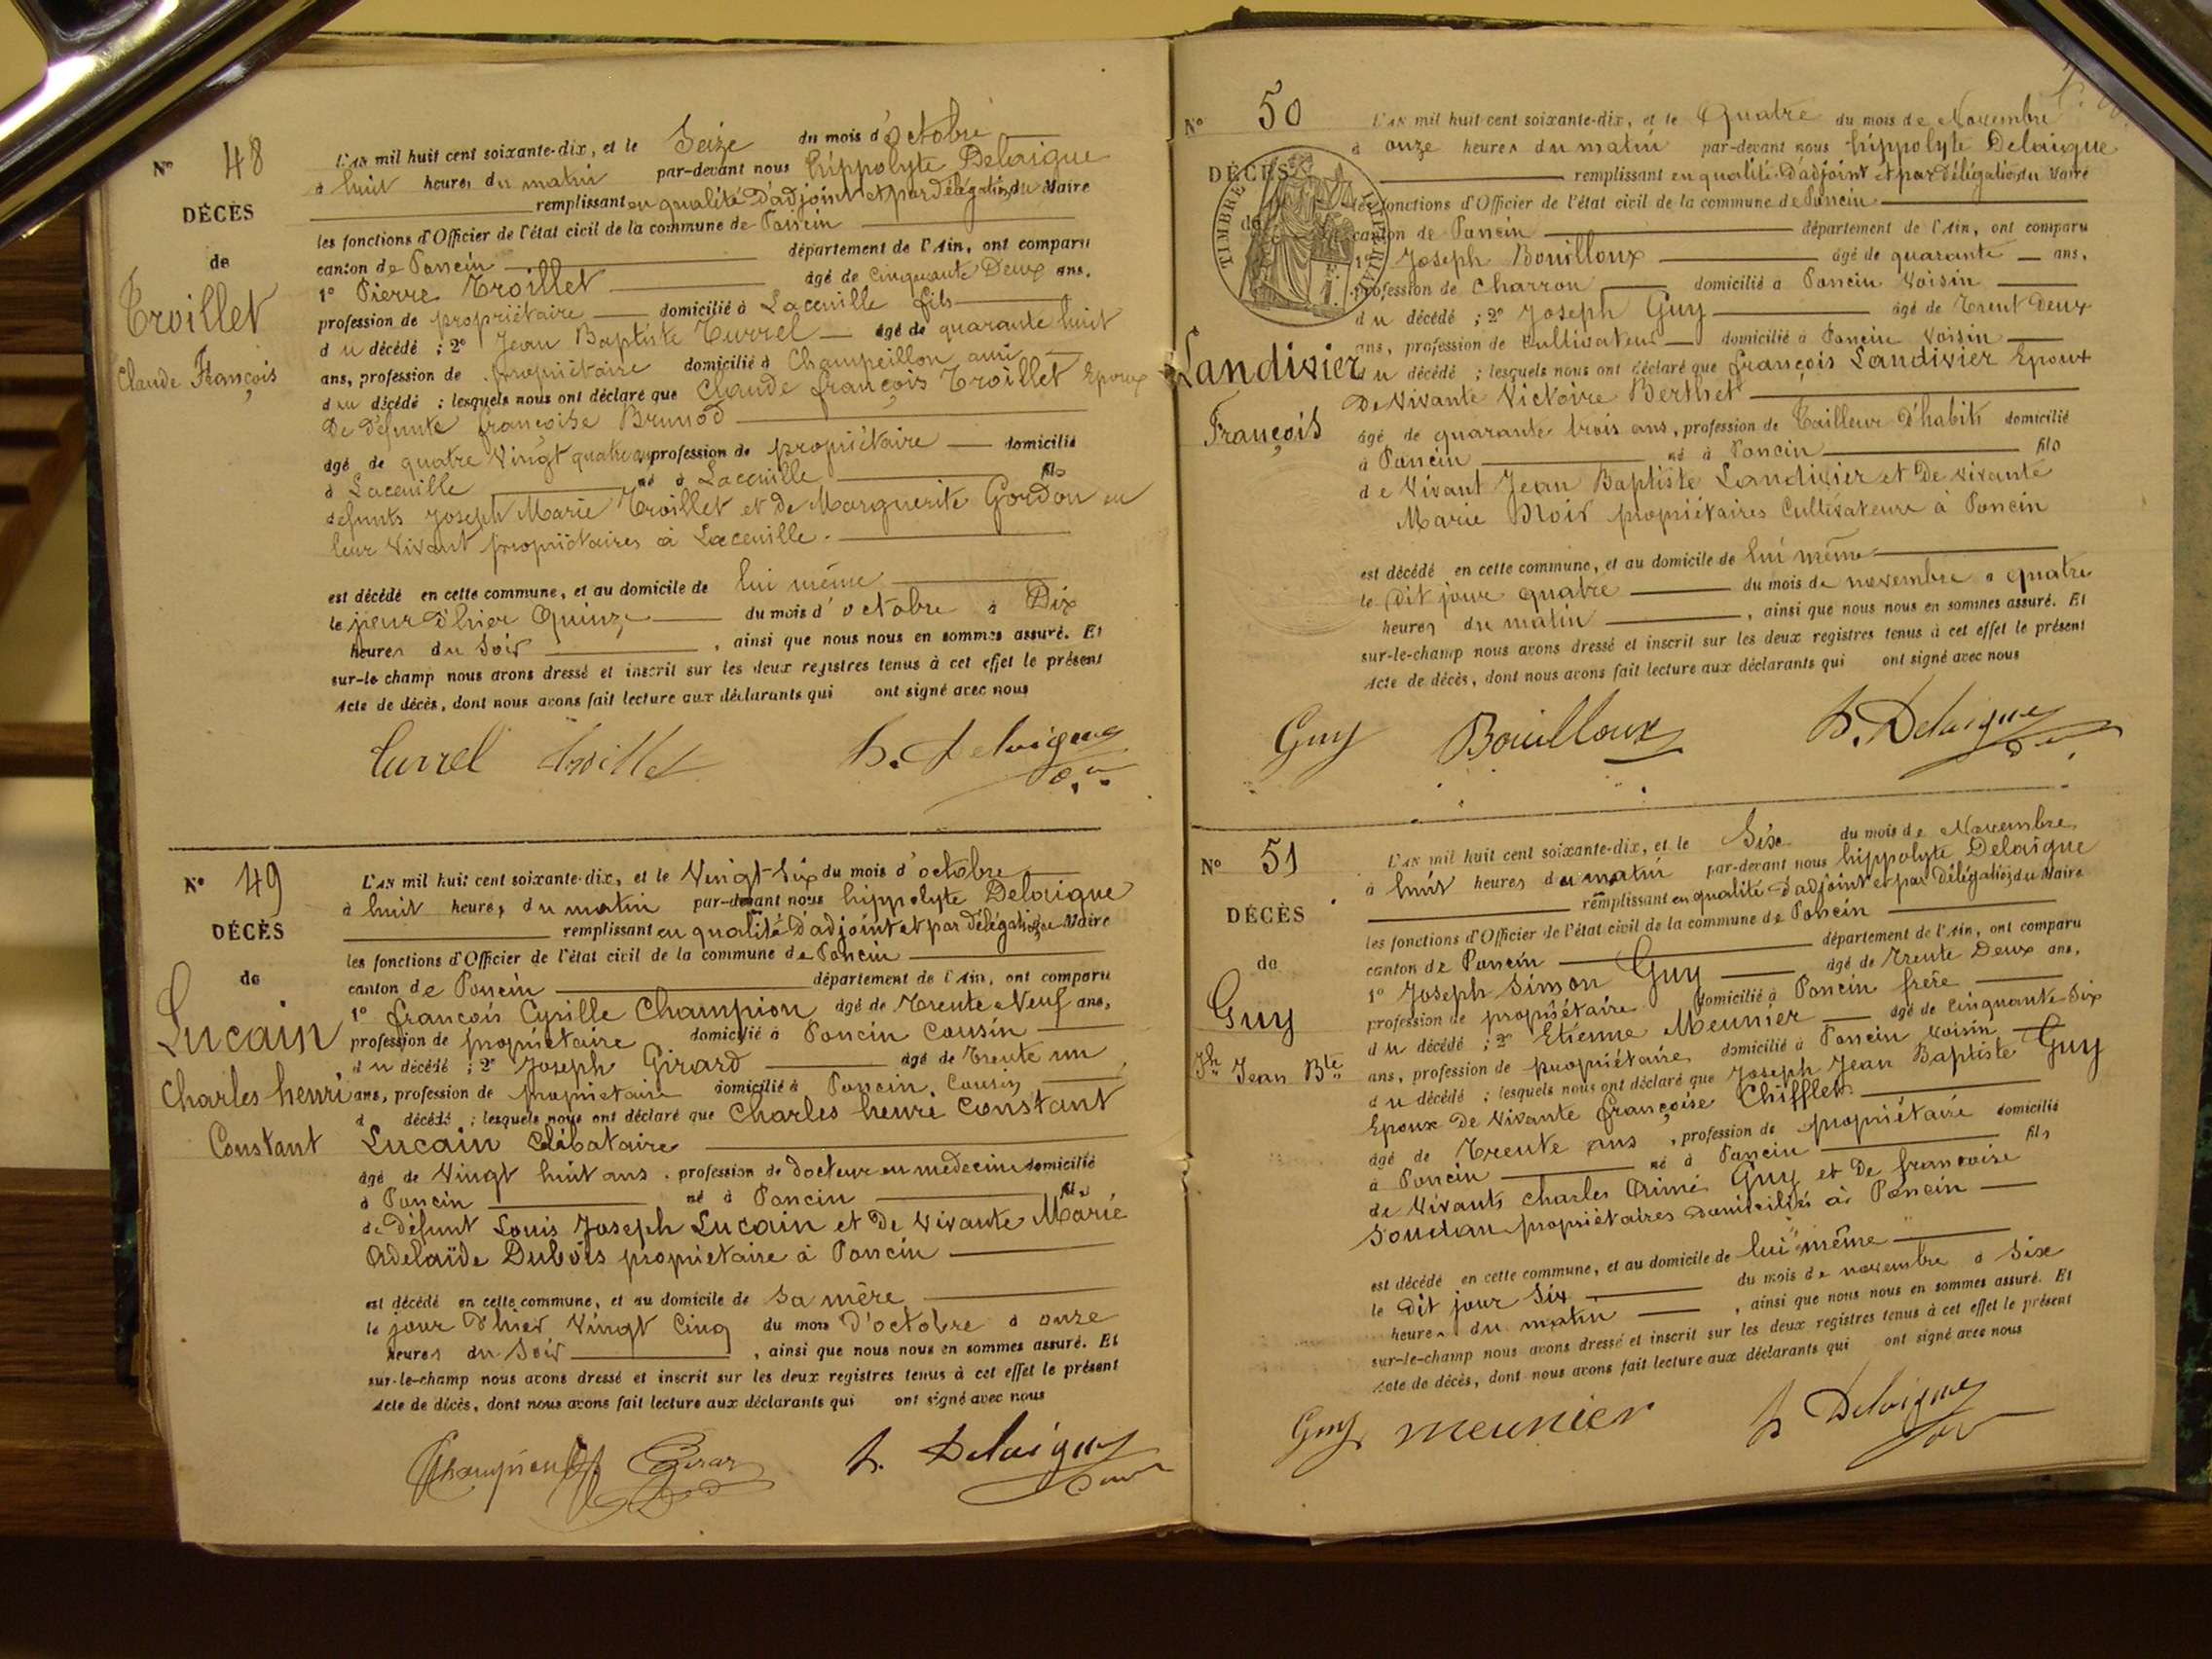 N° 48
DÉCÈS
de
Troillet
Claude François
L'AN mil huit cent soixante-dix, et le Seize du mois d'octobre
à huit heures du matin par-devant nous hippolyte Delaigue
remplissant en qualité D'adjoint et par délégation du Maire
les fonctions d'Officier de l'état civil de la commune de Poncin
canton de Poncin département de l'Ain, ont comparu
1° Pierre Troillet âgé de Cinquante Deux ans,
profession de propriétaire domicilié à Laceuille fils
du décédé ; 2° Jean Baptiste Turrel âgé de quarante huit
ans, profession de propriétaire domicilié à Champeillon ami
du décédé ; lesquels nous ont déclaré que Claude françois Troillet Epoux
De défunte françoise Brunod
âgé de quatre Vingt quatre ans profession de propriétaire domicilié
à Laceuille né à Laceuille fils
defunts Joseph Marie Troillet et de Marguerite Gordon en
leur Vivant propriétaires à Laceuille.
est décédé en cette commune, et au domicile de lui même
le jour d'hier Quinze du mois d'octobre à Dix
heures du Soir , ainsi que nous nous en sommes assuré. Et
sur-le champ nous avons dressé et inscrit sur les deux registres tenus à cet effet le présent
Acte de décès, dont nous avons fait lecture aux déclarants qui ont signé avec nous
Turrel Troillet h. Delaigue
N° 49
DÉCÈS
de
Lucain
Charles henri
Constant
L'AN mil huit cent soixante-dix, et le Vingt-Six du mois d'octobre
à huit heures du matin par-devant nous hippolyte Delaigue
remplissant en qualité D'adjoint et par délégation du Maire
les fonctions d'Officier de l'état civil de la commune de Poncin
canton de Poncin département de l'Ain, ont comparu
1° françois Cyrille Champion âgé de Trente Neuf ans,
profession de propriétaire domicilié à Poncin Cousin
du décédé ; 2° Joseph Girard âgé de Trente un
ans, profession de propriétaire domicilié à Poncin, Cousin
d décédé ; lesquels nous ont déclaré que Charles henri Constant
Lucain Célibataire
âgé de Vingt huit ans, profession de docteur en medecine domicilié
à Poncin né à Poncin fils
de Défunt Louis Joseph Lucain et De Vivante Marie
Adelaïde Dubois propriétaire à Poncin
est décédé en cette commune, et au domicile de Sa mère
le jour d'hier Vingt Cinq du mois D'octobre à onze
heures du Soir , ainsi que nous nous en sommes assuré. Et
sur-le-champ nous avons dressé et inscrit sur les deux registres tenus à cet effet le présent
Acte de décès, dont nous avons fait lecture aux déclarants qui ont signé avec nous
Champion Girard h. Delaigue
N° 50
DÉCÈS
de
TIMBRE IMPÉRIAL
Landivier
François
L'AN mil huit cent soixante-dix, et le Quatre du mois de Novembre
à onze heures du matin par-devant nous hippolyte Delaigue
remplissant en qualité D'adjoint et par délégation du Maire
les fonctions d'Officier de l'état civil de la commune de Poncin
canton de Poncin département de l'Ain, ont comparu
1° Joseph Bouilloux âgé de quarante ans,
profession de Charron domicilié à Poncin Voisin
du décédé ; 2° Joseph Guy âgé de Trent Deux
ans, profession de Cultivateur domicilié à Poncin Voisin
du décédé ; lesquels nous ont déclaré que françois Landivier Epoux
De Vivante Victoire Berthet
âgé de quarante trois ans, profession de Tailleur D'habits domicilié
à Poncin né à Poncin fils
de Vivant Jean Baptiste Landivier et De Vivante
Marie Noir propriétaires Cultivateurs à Poncin
est décédé en cette commune, et au domicile de lui même
le Dit jour quatre du mois de novembre à quatre
heures du matin , ainsi que nous nous en sommes assuré. Et
sur-le-champ nous avons dressé et inscrit sur les deux registres tenus à cet effet le présent
Acte de décès, dont nous avons fait lecture aux déclarants qui ont signé avec nous
Guy Bouilloux h. Delaigue
N° 51
DÉCÈS
de
Guy
Jh Jean Bte
L'AN mil huit cent soixante-dix, et le Six du mois de Novembre
à huit heures du matin par-devant nous hippolyte Delaigue
remplissant en qualité d'adjoint et par Délégation du Maire
les fonctions d'Officier de l'état civil de la commune de Poncin
canton de Poncin département de l'Ain, ont comparu
1° Joseph Simon Guy âgé de Trente Deux ans,
profession de propriétaire domicilié à Poncin frère
du décédé ; 2° Etienne Meunier âgé de Cinquante Six
ans, profession de propriétaire domicilié à Poncin Voisin
du décédé ; lesquels nous ont déclaré que Joseph Jean Baptiste Guy
Epoux De Vivante françoise Chifflet
âgé de Trente ans , profession de propriétaire domicilié
à Poncin né à Poncin fils
de Vivants Charles Aimé Guy et De francoise
Soudan propriétaires domiciliés à Poncin
est décédé en cette commune, et au domicile de lui même
le Dit jour Six du mois de novembre à Six
heures du matin , ainsi que nous nous en sommes assuré. Et
sur-le-champ nous avons dressé et inscrit sur les deux registres tenus à cet effet le présent
Acte de décès, dont nous avons fait lecture aux déclarants qui ont signé avec nous
Guy meunier h Delaigue